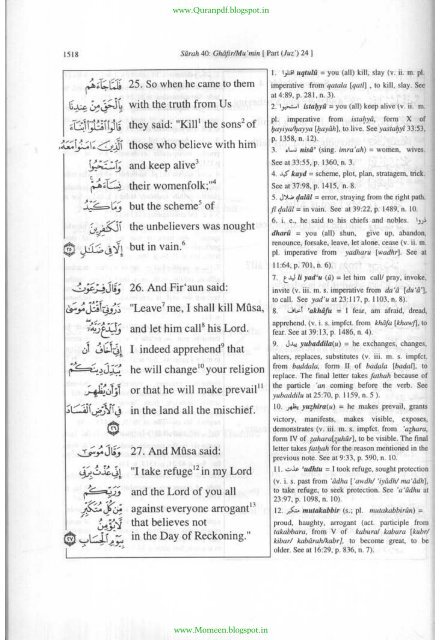 www.Quranpdf.blogspot.in
1518
Sûrah 40: Ghâfir/Mu'min [ Part (Juz') 24 ]
فَلَمَّا جَاءَهُم
بِالْحَقِّ مِنْ عِندِنَا
قَالُوا اقْتُلُوا أَبْنَاءَ
الَّذِينَ ءَامَنُوا مَعَهُ
وَاسْتَحْيُوا
نِسَاءَهُمْ
وَمَا كَيْدُ
الْكَافِرِينَ
إِلَّا فِي ضَلَالٍ ٢٥
وَقَالَ فِرْعَوْنُ
ذَرُونِي أَقْتُلْ مُوسَى
وَلْيَدْعُ رَبَّهُ
إِنِّي أَخَافُ أَن
يُبَدِّلَ دِينَكُمْ
أَوْ أَن يُظْهِرَ
فِي الْأَرْضِ الْفَسَادَ
٢٦
وَقَالَ مُوسَى
إِنِّي عُذْتُ بِرَبِّي
وَرَبِّكُم
مِّن كُلِّ مُتَكَبِّرٍ
لَّا يُؤْمِنُ
بِيَوْمِ الْحِسَابِ ٢٧
25. So when he came to them
with the truth from Us
they said: "Kill¹ the sons² of
those who believe with him
and keep alive³
their womenfolk;"⁴
but the scheme⁵ of
the unbelievers was nought
but in vain.⁶
26. And Fir'aun said:
"Leave⁷ me, I shall kill Mûsa,
and let him call⁸ his Lord.
I indeed apprehend⁹ that
he will change¹⁰ your religion
or that he will make prevail¹¹
in the land all the mischief.
27. And Mûsa said:
"I take refuge¹² in my Lord
and the Lord of you all
against everyone arrogant¹³
that believes not
in the Day of Reckoning."
1. اقتلوا uqtulû = you (all) kill, slay (v. ii. m. pl.
imperative from qatala [qatl] , to kill, slay. See
at 4:89, p. 281, n. 3).
2. استحيوا istahyû = you (all) keep alive (v. ii. m.
pl. imperative from istahyâ, form X of
hayiya/hayya [hayâh], to live. See yastahyî 33:53,
p. 1358, n. 12).
3. نساء nisâ' (sing. imra'ah) = women, wives.
See at 33:55, p. 1360, n. 3.
4. كيد kayd = scheme, plot, plan, stratagem, trick.
See at 37:98, p. 1415, n. 8.
5. ضلال dalâl = error, straying from the right path.
fî dalâl = in vain. See at 39:22, p. 1489, n. 10.
6. i. e., he said to his chiefs and nobles. ذروا
dharû = you (all) shun, give up, abandon,
renounce, forsake, leave, let alone, cease (v. ii. m.
pl. imperative from yadharu [wadhr]. See at
11:64, p. 701, n. 6).
7. ليدع li yad'u (û) = let him call/ pray, invoke,
invite (v. iii. m. s. imperative from da'â [du'â'],
to call. See yad'u at 23:117, p. 1103, n. 8).
8. أخاف 'akhâfu = I fear, am afraid, dread,
apprehend. (v. i. s. impfct. from khâfa [khawf], to
fear. See at 39:13, p. 1486, n. 4).
9. يبدل yubaddila(u) = he exchanges, changes,
alters, replaces, substitutes (v. iii. m. s. impfct.
from baddala, form II of badala [badal], to
replace. The final letter takes fathah because of
the particle 'an coming before the verb. See
yubaddilu at 25:70, p. 1159, n. 5 ).
10. يظهر yazhira(u) = he makes prevail, grants
victory, manifests, makes visible, exposes,
demonstrates (v. iii. m. s. impfct. from 'azhara,
form IV of zahara[zuhûr], to be visible. The final
letter takes fathah for the reason mentioned in the
previous note. See at 9:33, p. 590, n. 10.
11. عذت 'udhtu = I took refuge, sought protection
(v. i. s. past from 'âdha ['awdh/ 'iyâdh/ ma'âdh],
to take refuge, to seek protection. See 'a'ûdhu at
23:97, p. 1098, n. 10).
12. متكبر mutakabbir (s.; pl. mutakabbirûn) =
proud, haughty, arrogant (act. participle from
takabbara, from V of kabura/ kabara [kubr/
kibar/ kabârah/kabr], to become great, to be
older. See at 16:29, p. 836, n. 7).
www.Momeen.blogspot.in